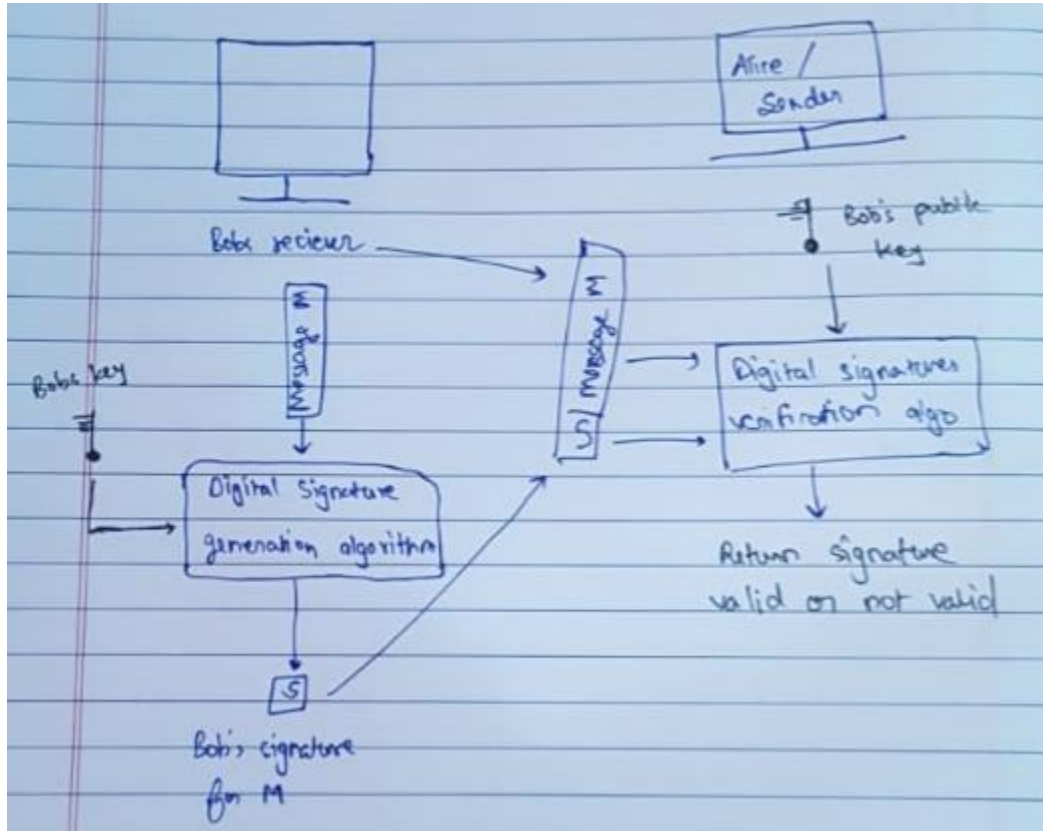 Alice /
Sender
Bobs reciever
Bob's public
key
Message M
Message M
S
Bobs key
Digital signatures
verification algo
Digital Signature
generation algorithm
Return signature
valid or not valid
S
Bob's signature
for M